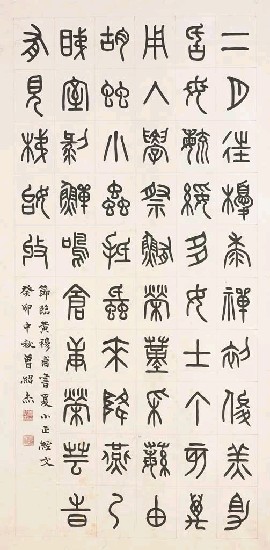 二月往耰黍禪初俊羔助
厥母粥綏多女士丁亥萬
用入學祭鮪榮堇采蘩由
胡䖵小蟲抵蚳來降燕乃
睇室剝鱓鳴倉庚榮芸旹
有見稊始收
節臨黃穆甫書夏小正經文
癸卯中秋曾紹杰